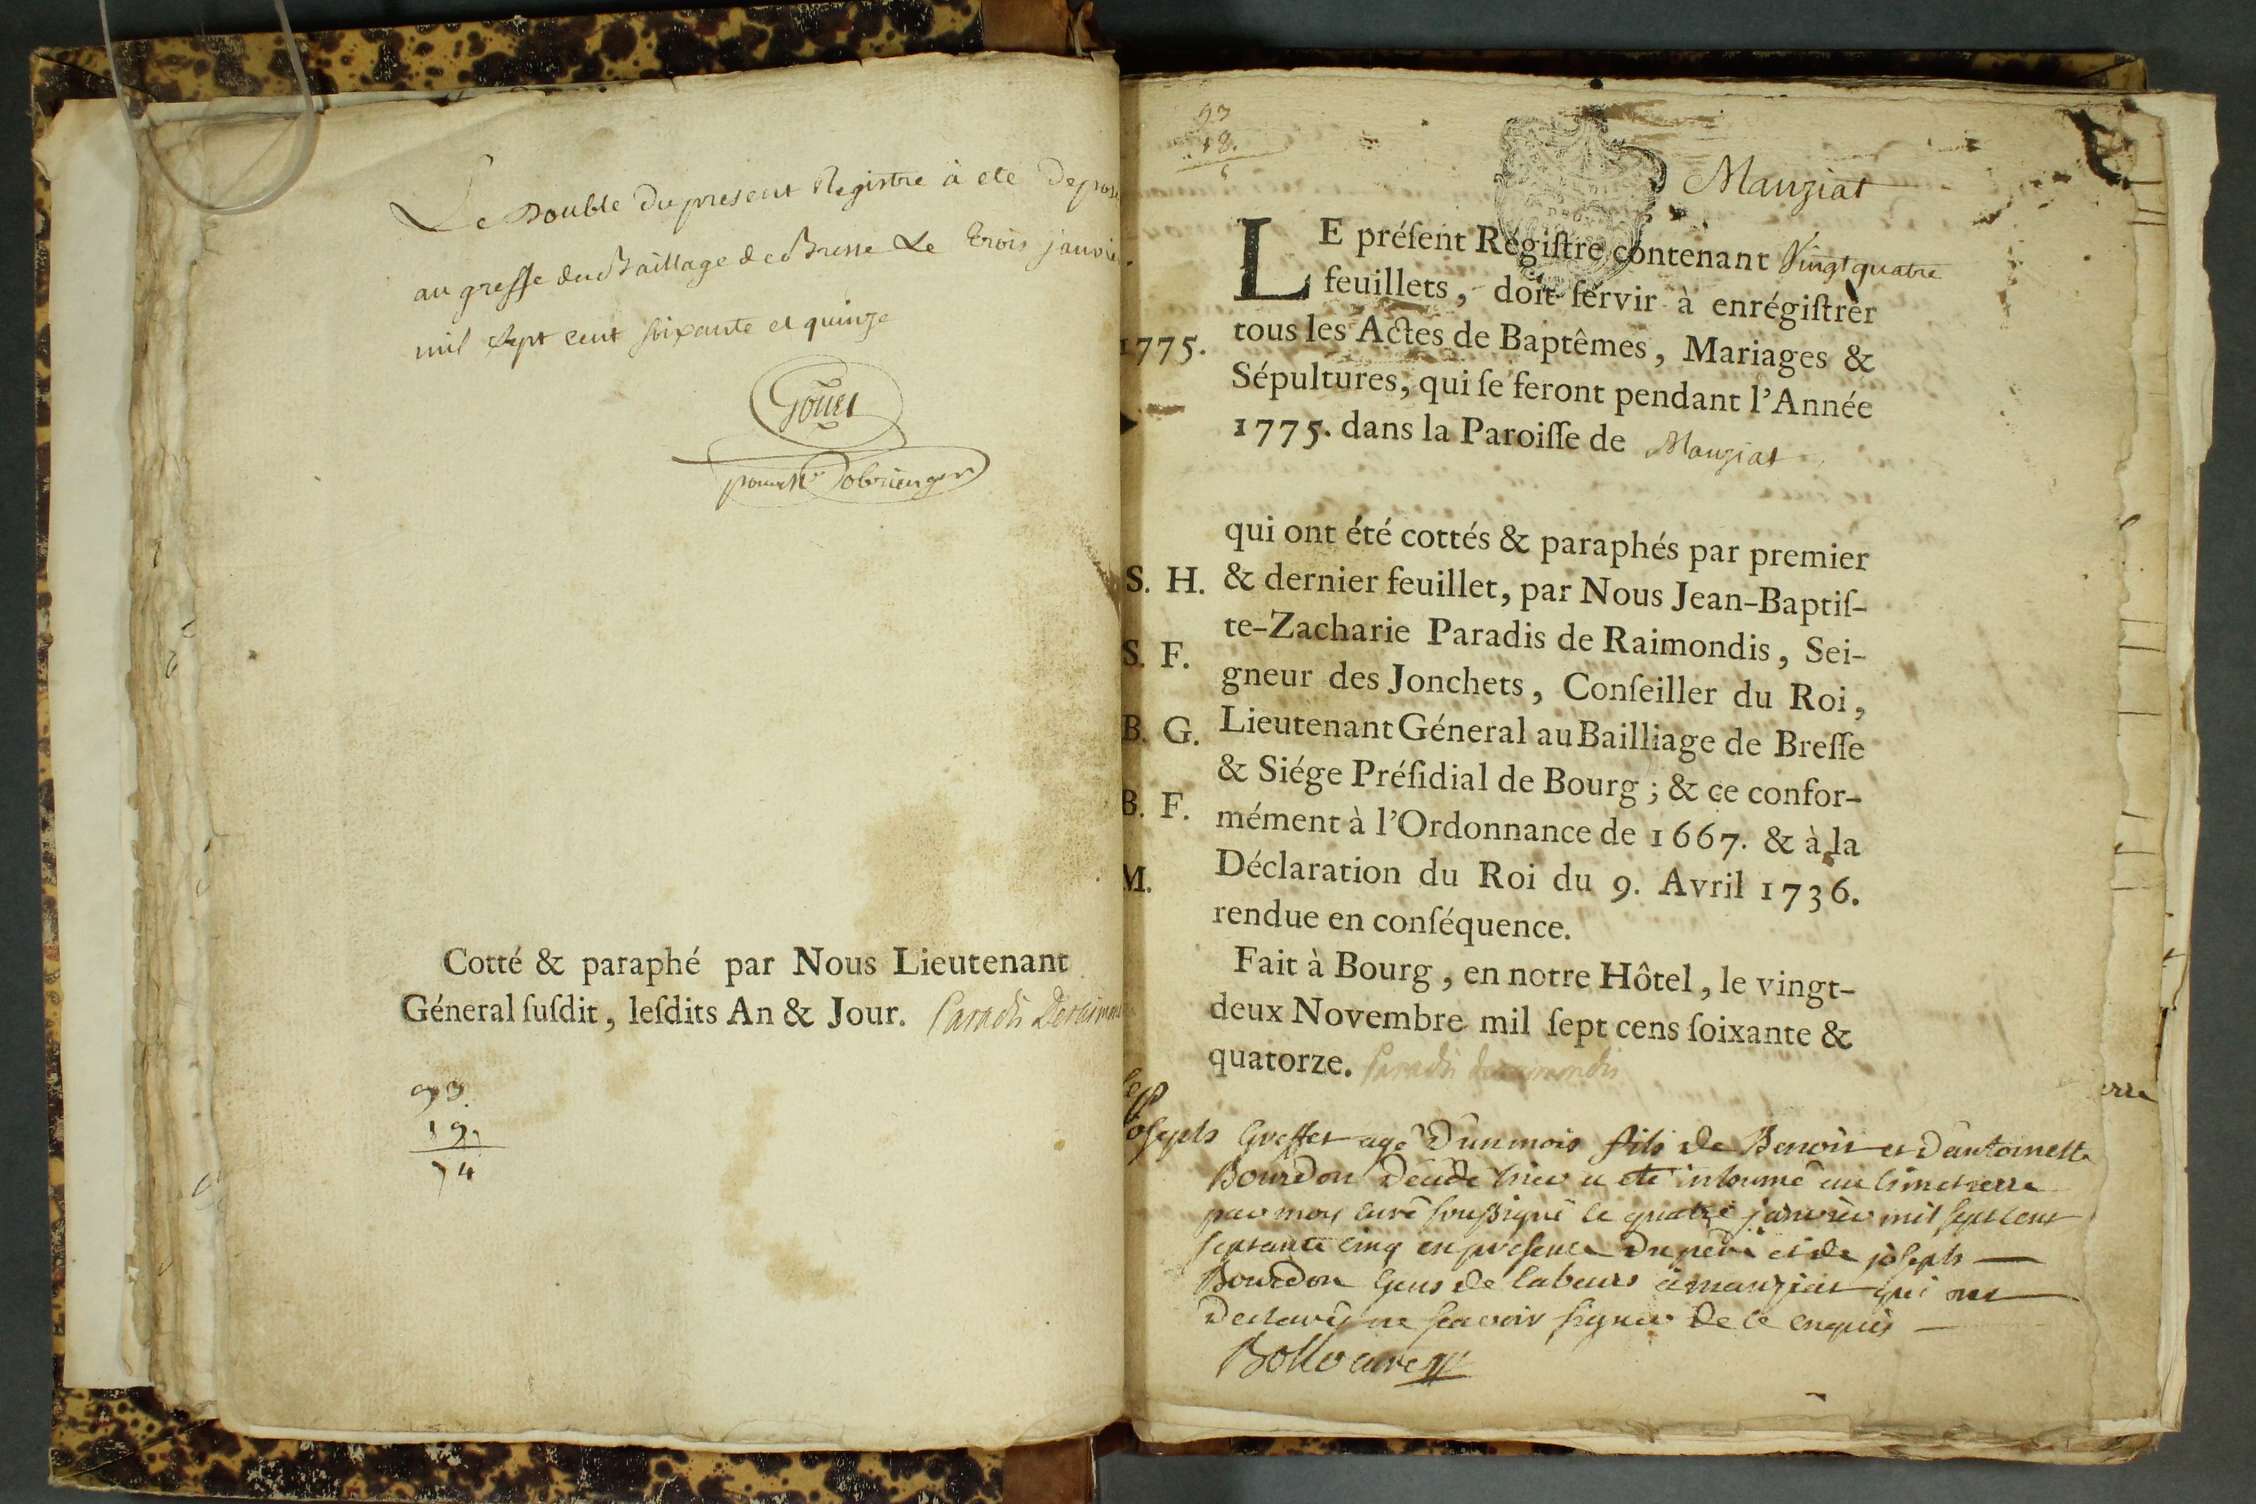 Le Double du present Registre à eté deposé
au greffe du Baillage de Bresse Le trois janvier
mil Sept cent soixante et quinze
Goüet
pour Mr
Cotté & paraphé par Nous Lieutenant
Géneral ſuſdit, leſdits An & Jour. Paradis Deraimon
93.
19.
74
93
18.
Manziat
LE préſent Regiſtre contenant Vingt quatre
feuillets, doit ſervir à enrégiſtrer
1775. tous les Actes de Baptêmes, Mariages &
Sépultures, qui ſe feront pendant l'Année
1775. dans la Paroiſſe de Manziat
qui ont été cottés & paraphés par premier
S. H. & dernier feuillet, par Nous Jean-Baptiſ-
te-Zacharie Paradis de Raimondis, Sei-
S. F. gneur des Jonchets, Conſeiller du Roi,
B. G. Lieutenant Géneral au Bailliage de Breſſe
& Siége Préſidial de Bourg; & ce confor-
B. F. mément à l'Ordonnance de 1667. & à la
M. Déclaration du Roi du 9. Avril 1736.
rendue en conſéquence.
Fait à Bourg, en notre Hôtel, le vingt-
deux Novembre mil ſept cens ſoixante &
quatorze. Paradis deraimondis
erre
Joseph Greffet agé D'un mois fils de Benoit et D'antoinette
Bourdon décédé hier a eté inhumé au cimetierre
par moy curé soussigné le quatre janvier mil sept cent
septante cinq en presence du pere et de joseph
Bourdon gens de labeurs à manziat qui ont
declarés ne scavoir signer de ce enquis
curé